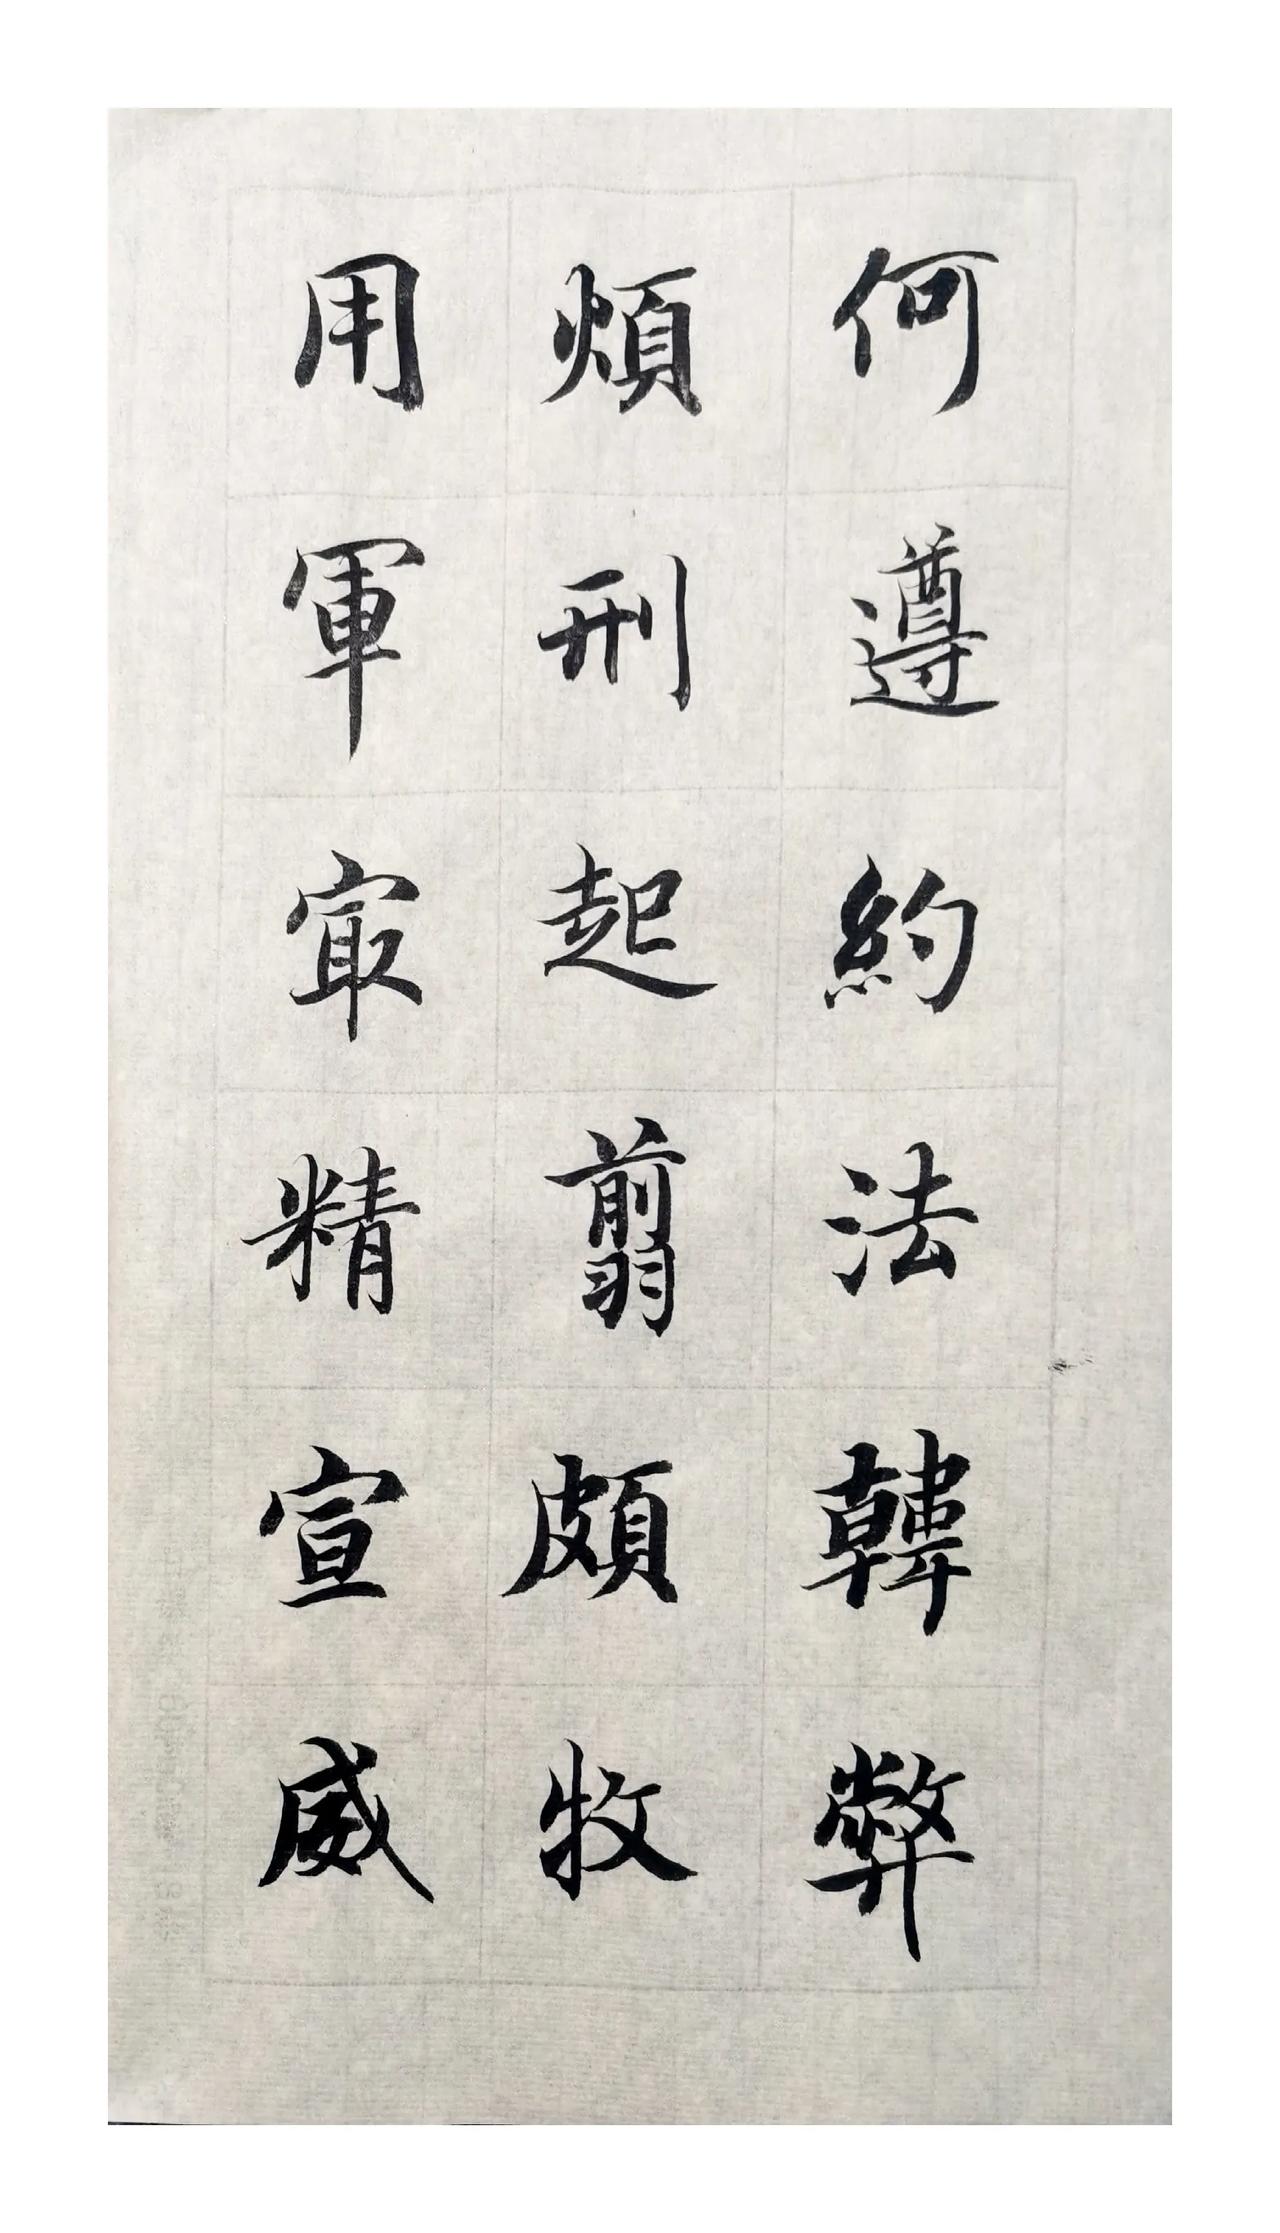 何遵約法韓弊
煩刑起翦頗牧
用軍冣精宣威